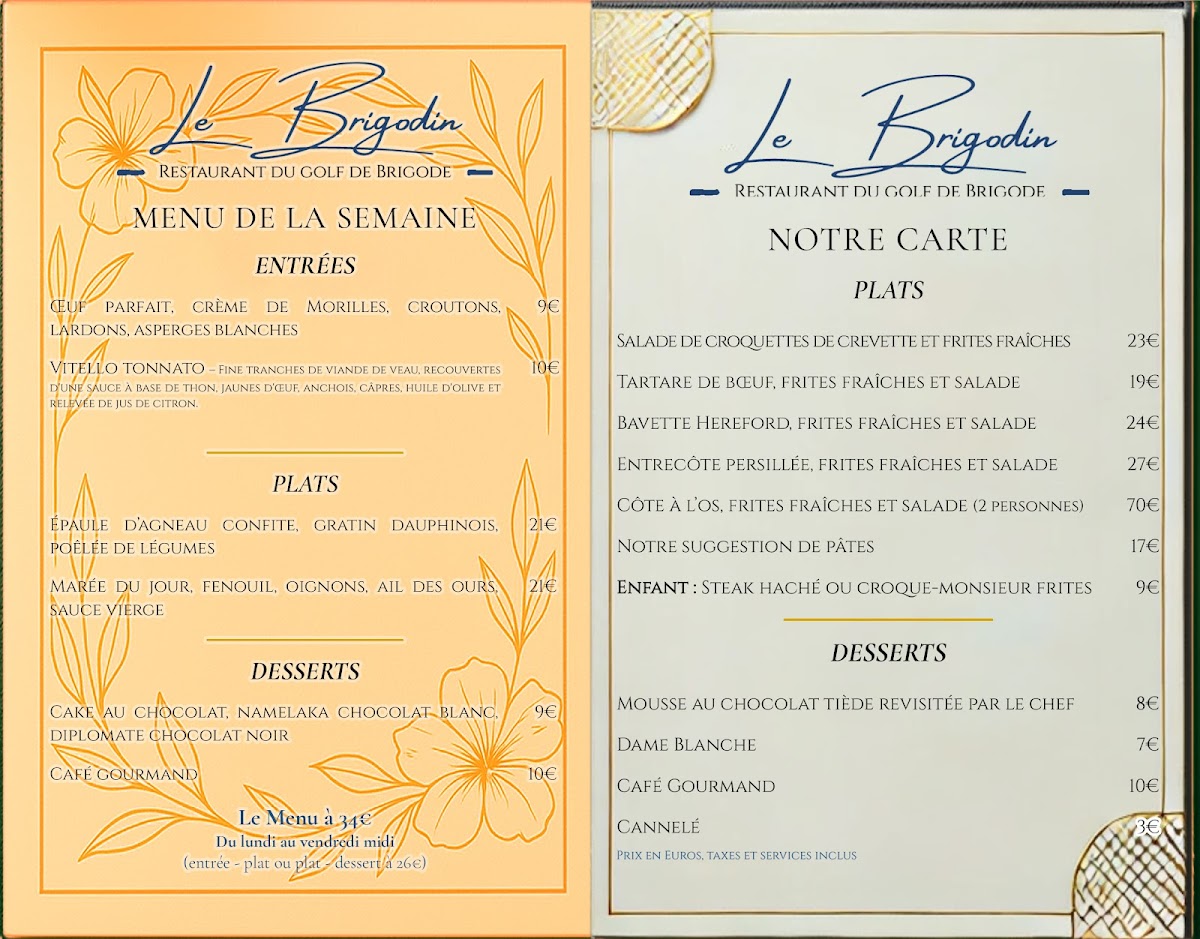 Le Brigodin
Restaurant du golf de Brigode
MENU DE LA SEMAINE
ENTRÉES
Œuf parfait, crème de Morilles, croutons, 9€
lardons, asperges blanches
Vitello tonnato – Fine tranches de viande de veau, recouvertes 10€
d'une sauce à base de thon, jaunes d'œuf, anchois, câpres, huile d'olive et
relevée de jus de citron.
PLATS
Épaule d'agneau confite, gratin dauphinois, 21€
poêlée de légumes
Marée du jour, fenouil, oignons, ail des ours, 21€
sauce vierge
DESSERTS
Cake au chocolat, namelaka chocolat blanc, 9€
diplomate chocolat noir
Café gourmand 10€
Le Menu à 34€
Du lundi au vendredi midi
(entrée - plat ou plat - dessert à 26€)
Le Brigodin
Restaurant du golf de Brigode
NOTRE CARTE
PLATS
Salade de croquettes de crevette et frites fraîches 23€
Tartare de bœuf, frites fraîches et salade 19€
Bavette Hereford, frites fraîches et salade 24€
Entrecôte persillée, frites fraîches et salade 27€
Côte à l'os, frites fraîches et salade (2 personnes) 70€
Notre suggestion de pâtes 17€
Enfant : Steak haché ou croque-monsieur frites 9€
DESSERTS
Mousse au chocolat tiède revisitée par le chef 8€
Dame Blanche 7€
Café Gourmand 10€
Cannelé 3€
Prix en Euros, taxes et services inclus